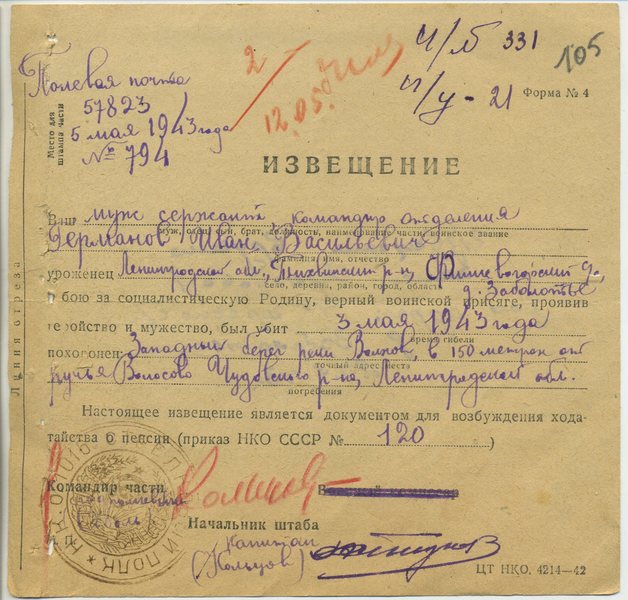 Полевая почта
57823
5 мая 1943 года
№ 794
Место для штампа части
2
12.05.
Ч/Л 331
П/у - 21
105
Форма № 4
ИЗВЕЩЕНИЕ
Ваш муж сержант командир отделения
муж, сын, брат, должность, наименование части, воинское звание
Германов Иван Васильевич
фамилия, имя, отчество
уроженец Ленинградской обл., Тихвинский р-н,
село, деревня, район, город, область
д. Заболотье
в бою за социалистическую Родину, верный воинской присяге, проявив
геройство и мужество, был убит 3 мая 1943 года
время гибели
похоронен: Западный берег реки Волхов, в 150 метрах от
точный адрес места
ручья Волосово Чудовского р-на, Ленинградской обл.
погребения
Линия отреза
Настоящее извещение является документом для возбуждения хода-
тайства о пенсии (приказ НКО СССР № 120 )
Командир части
Начальник штаба
капитан
(Кольцов)
ПОЛК * Н.К.О.
ЦТ НКО. 4214—42